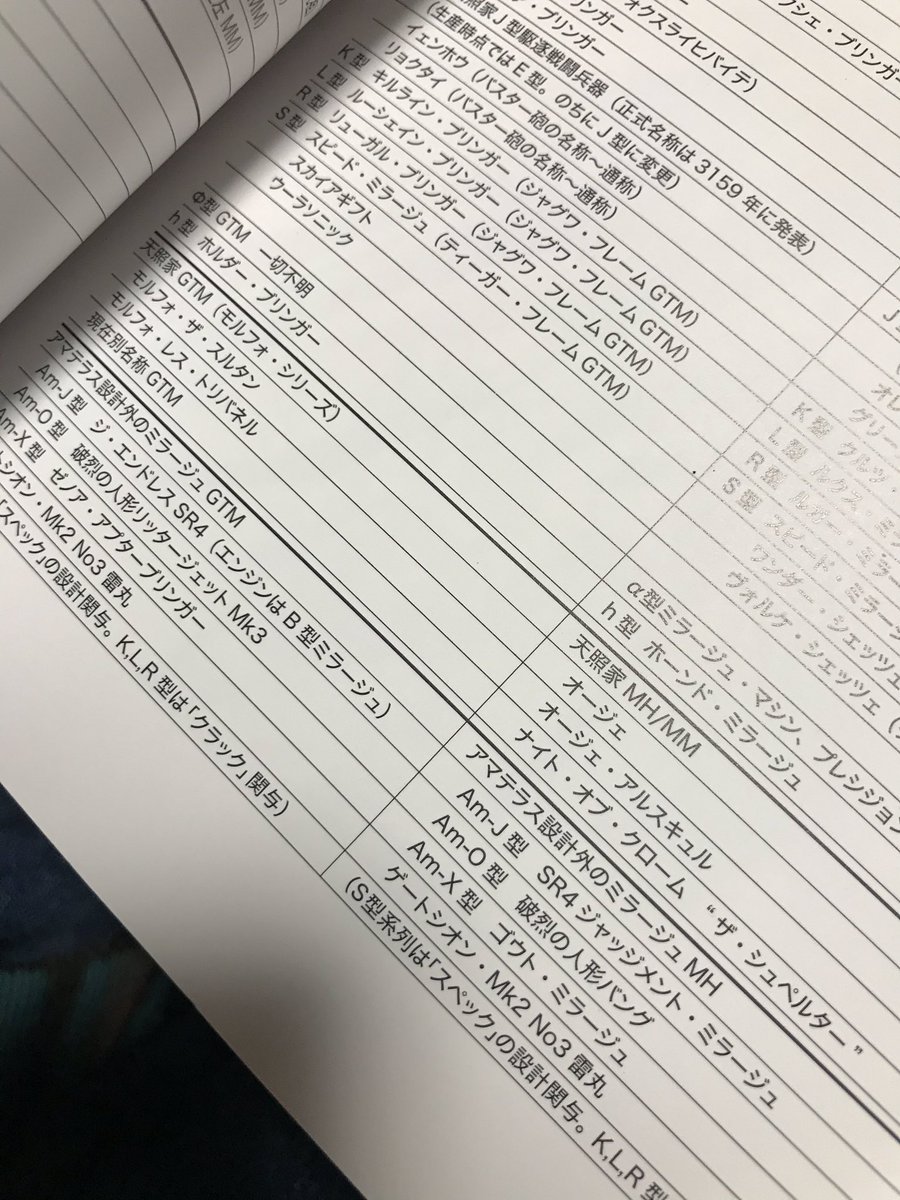 ブリンガー
オクスライヒバイテ)
照家J型駆逐戦闘兵器(正式名称は3159年に発表)
(生産時点ではE型。のちにJ型に変更)
イェンホウ(バスター砲の名称〜通称)
リョクタイ(バスター砲の名称〜通称)
K型 キルライン・ブリンガー(ジャグワ・フレームGTM)
L型 ルーシェイン・ブリンガー(ジャグワ・フレームGTM)
R型 リューガル・ブリンガー(ジャグワ・フレームGTM)
S型 スピード・ミラージュ(ティーガー・フレームGTM)
スカイアギフト
ウーラソニック
Φ型GTM 一切不明
h型 ホルダー・ブリンガー
天照家GTM(モルフォ・シリーズ)
モルフォ・ザ・スルタン
モルフォ・レス・トリバネル
現在別名称GTM
アマテラス設計外のミラージュGTM
Am-J型 ジ・エンドレスSR4(エンジンはB型ミラージュ)
Am-O型 破烈の人形リッタージェットMk3
Am-X型 ゼノア・アプターブリンガー
トシオン・Mk2 No3 雷丸
「スペック」の設計関与。K,L,R型は「クラック」関与)
シェ・ブリンガー
K型 クルツ・
L型 ルクス・ミ
R型 ルガー・ミラー
S型 スピード・ミラー
ワンダー・シェッツェ
ヴォルケ・シェッツェ(
α型ミラージュ・マシン、プレシジョン
h型 ホーンド・ミラージュ
天照家MH/MM
オージェ
オージェ・アルスキュル
ナイト・オブ・クローム “ザ・シュペルター”
アマテラス設計外のミラージュMH
Am-J型 SR4ジャッジメント・ミラージュ
Am-O型 破烈の人形バング
Am-X型 ゴウト・ミラージュ
ゲートシオン・Mk2 No3 雷丸
(S型系列は「スペック」の設計関与。K,L,R型